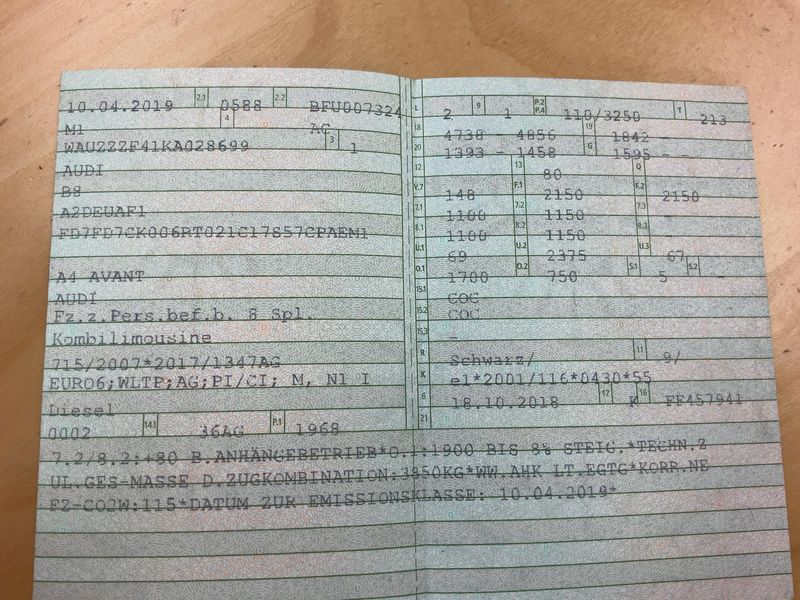 10.04.2019 2.1 0588 2.2 BFU007324
M1 4 AC
WAUZZZF41KA028699 3 1
AUDI
B8
A2DEUAF1
FD7FD7CK006RT021C17S57CPAEM1
A4 AVANT
AUDI
Fz.z.Pers.bef.b. 8 Spl.
Kombilimousine
715/2007*2017/1347AG
EURO6;WLTP;AG;PI/CI; M, N1 I
Diesel
0002 14.1 36AG P.1 1968
L 2 9 1 P.2 P.4 110/3250 T 213
18 4738 - 4856 19 1842 -
20 1393 - 1458 G 1595 - -
12 13 80 Q
V.7 148 F.1 2150 F.2 2150
7.1 1100 7.2 1150 7.3 -
8.1 1100 8.2 1150 8.3
U.1 69 U.2 2375 U.3 67
O.1 1700 O.2 750 S.1 5 S.2 -
15.1 COC
15.2 COC
15.3 -
R Schwarz/ 11 9/
K e1*2001/116*0430*55
6 18.10.2018 17 K 16 FF457941
21
7.2/8.2:+80 B.ANHÄNGEBETRIEB*O.1:1900 BIS 8% STEIG.*TECHN.Z
UL.GES-MASSE D.ZUGKOMBINATION:3850KG*WW.AHK LT.EGTG*KORR.NE
FZ-CO2W:115*DATUM ZUR EMISSIONSKLASSE: 10.04.2019*